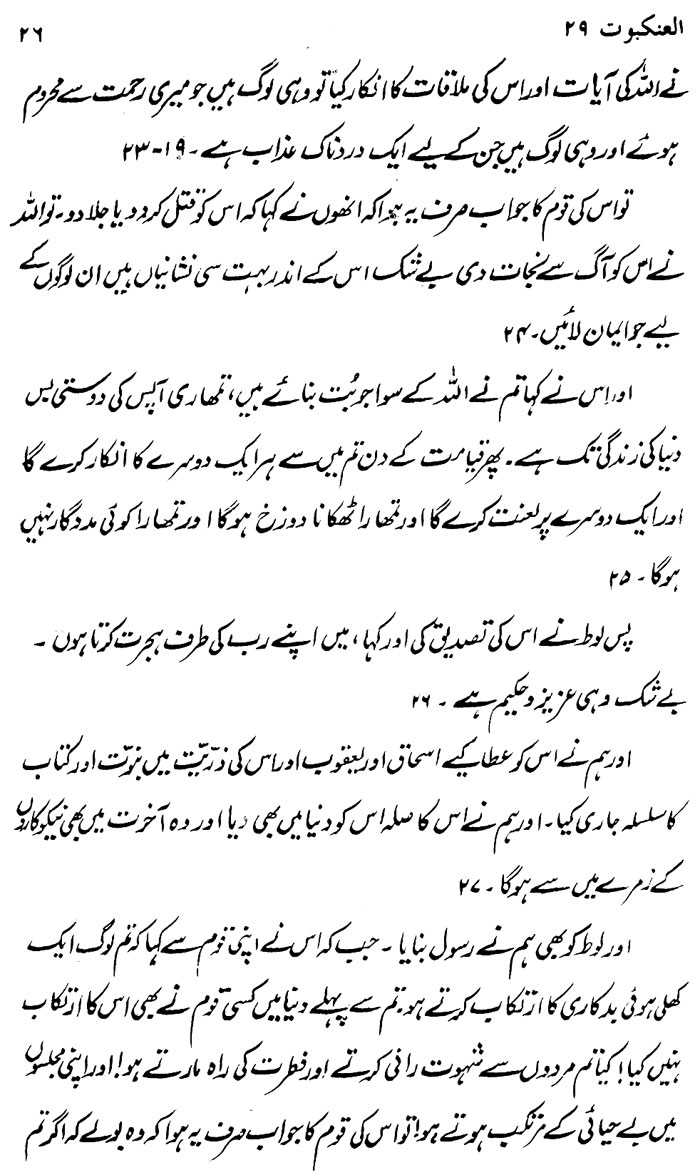 العنکبوت ۲۹
۲۶
نے اللہ کی آیات اور اس کی ملاقات کا انکار کیا تو وہی لوگ ہیں جو میری رحمت سے محروم
ہوئے اور وہی لوگ ہیں جن کے لیے ایک دردناک عذاب ہے۔ ۱۹-۲۳
تو اس کی قوم کا جواب صرف یہ ہوا کہ انھوں نے کہا کہ اس کو قتل کر دو یا جلا دو۔ تو اللہ
نے اس کو آگ سے نجات دی بے شک اس کے اندر بہت سی نشانیاں ہیں ان لوگوں کے
لیے جو ایمان لائیں۔ ۲۴
اور اس نے کہا تم نے اللہ کے سوا جو بُت بنائے ہیں، تمھاری آپس کی دوستی بس
دنیا کی زندگی تک ہے۔ پھر قیامت کے دن تم میں سے ہر ایک دوسرے کا انکار کرے گا
اور ایک دوسرے پر لعنت کرے گا اور تمھارا ٹھکانا دوزخ ہوگا اور تمھارا کوئی مددگار نہیں
ہوگا۔ ۲۵
پس لوط نے اس کی تصدیق کی اور کہا، میں اپنے رب کی طرف ہجرت کرتا ہوں۔
بے شک وہی عزیز و حکیم ہے۔ ۲۶
اور ہم نے اس کو عطا کیے اسحاق اور یعقوب اور اس کی ذرّیّت میں نبوّت اور کتاب
کا سلسلہ جاری کیا۔ اور ہم نے اس کا صلہ اس کو دنیا میں بھی دیا اور وہ آخرت میں بھی نیکوکاروں
کے زمرے میں سے ہوگا۔ ۲۷
اور لوط کو بھی ہم نے رسول بنایا۔ جب کہ اس نے اپنی قوم سے کہا کہ تم لوگ ایک
کھلی ہوئی بدکاری کا ارتکاب کرتے ہو۔ تم سے پہلے دنیا میں کسی قوم نے بھی اس کا ارتکاب
نہیں کیا! کیا تم مردوں سے شہوت رانی کرتے اور فطرت کی راہ مارتے ہو! اور اپنی مجلسوں
میں بے حیائی کے مرتکب ہوتے ہو! تو اس کی قوم کا جواب صرف یہ ہوا کہ وہ بولے کہ اگر تم